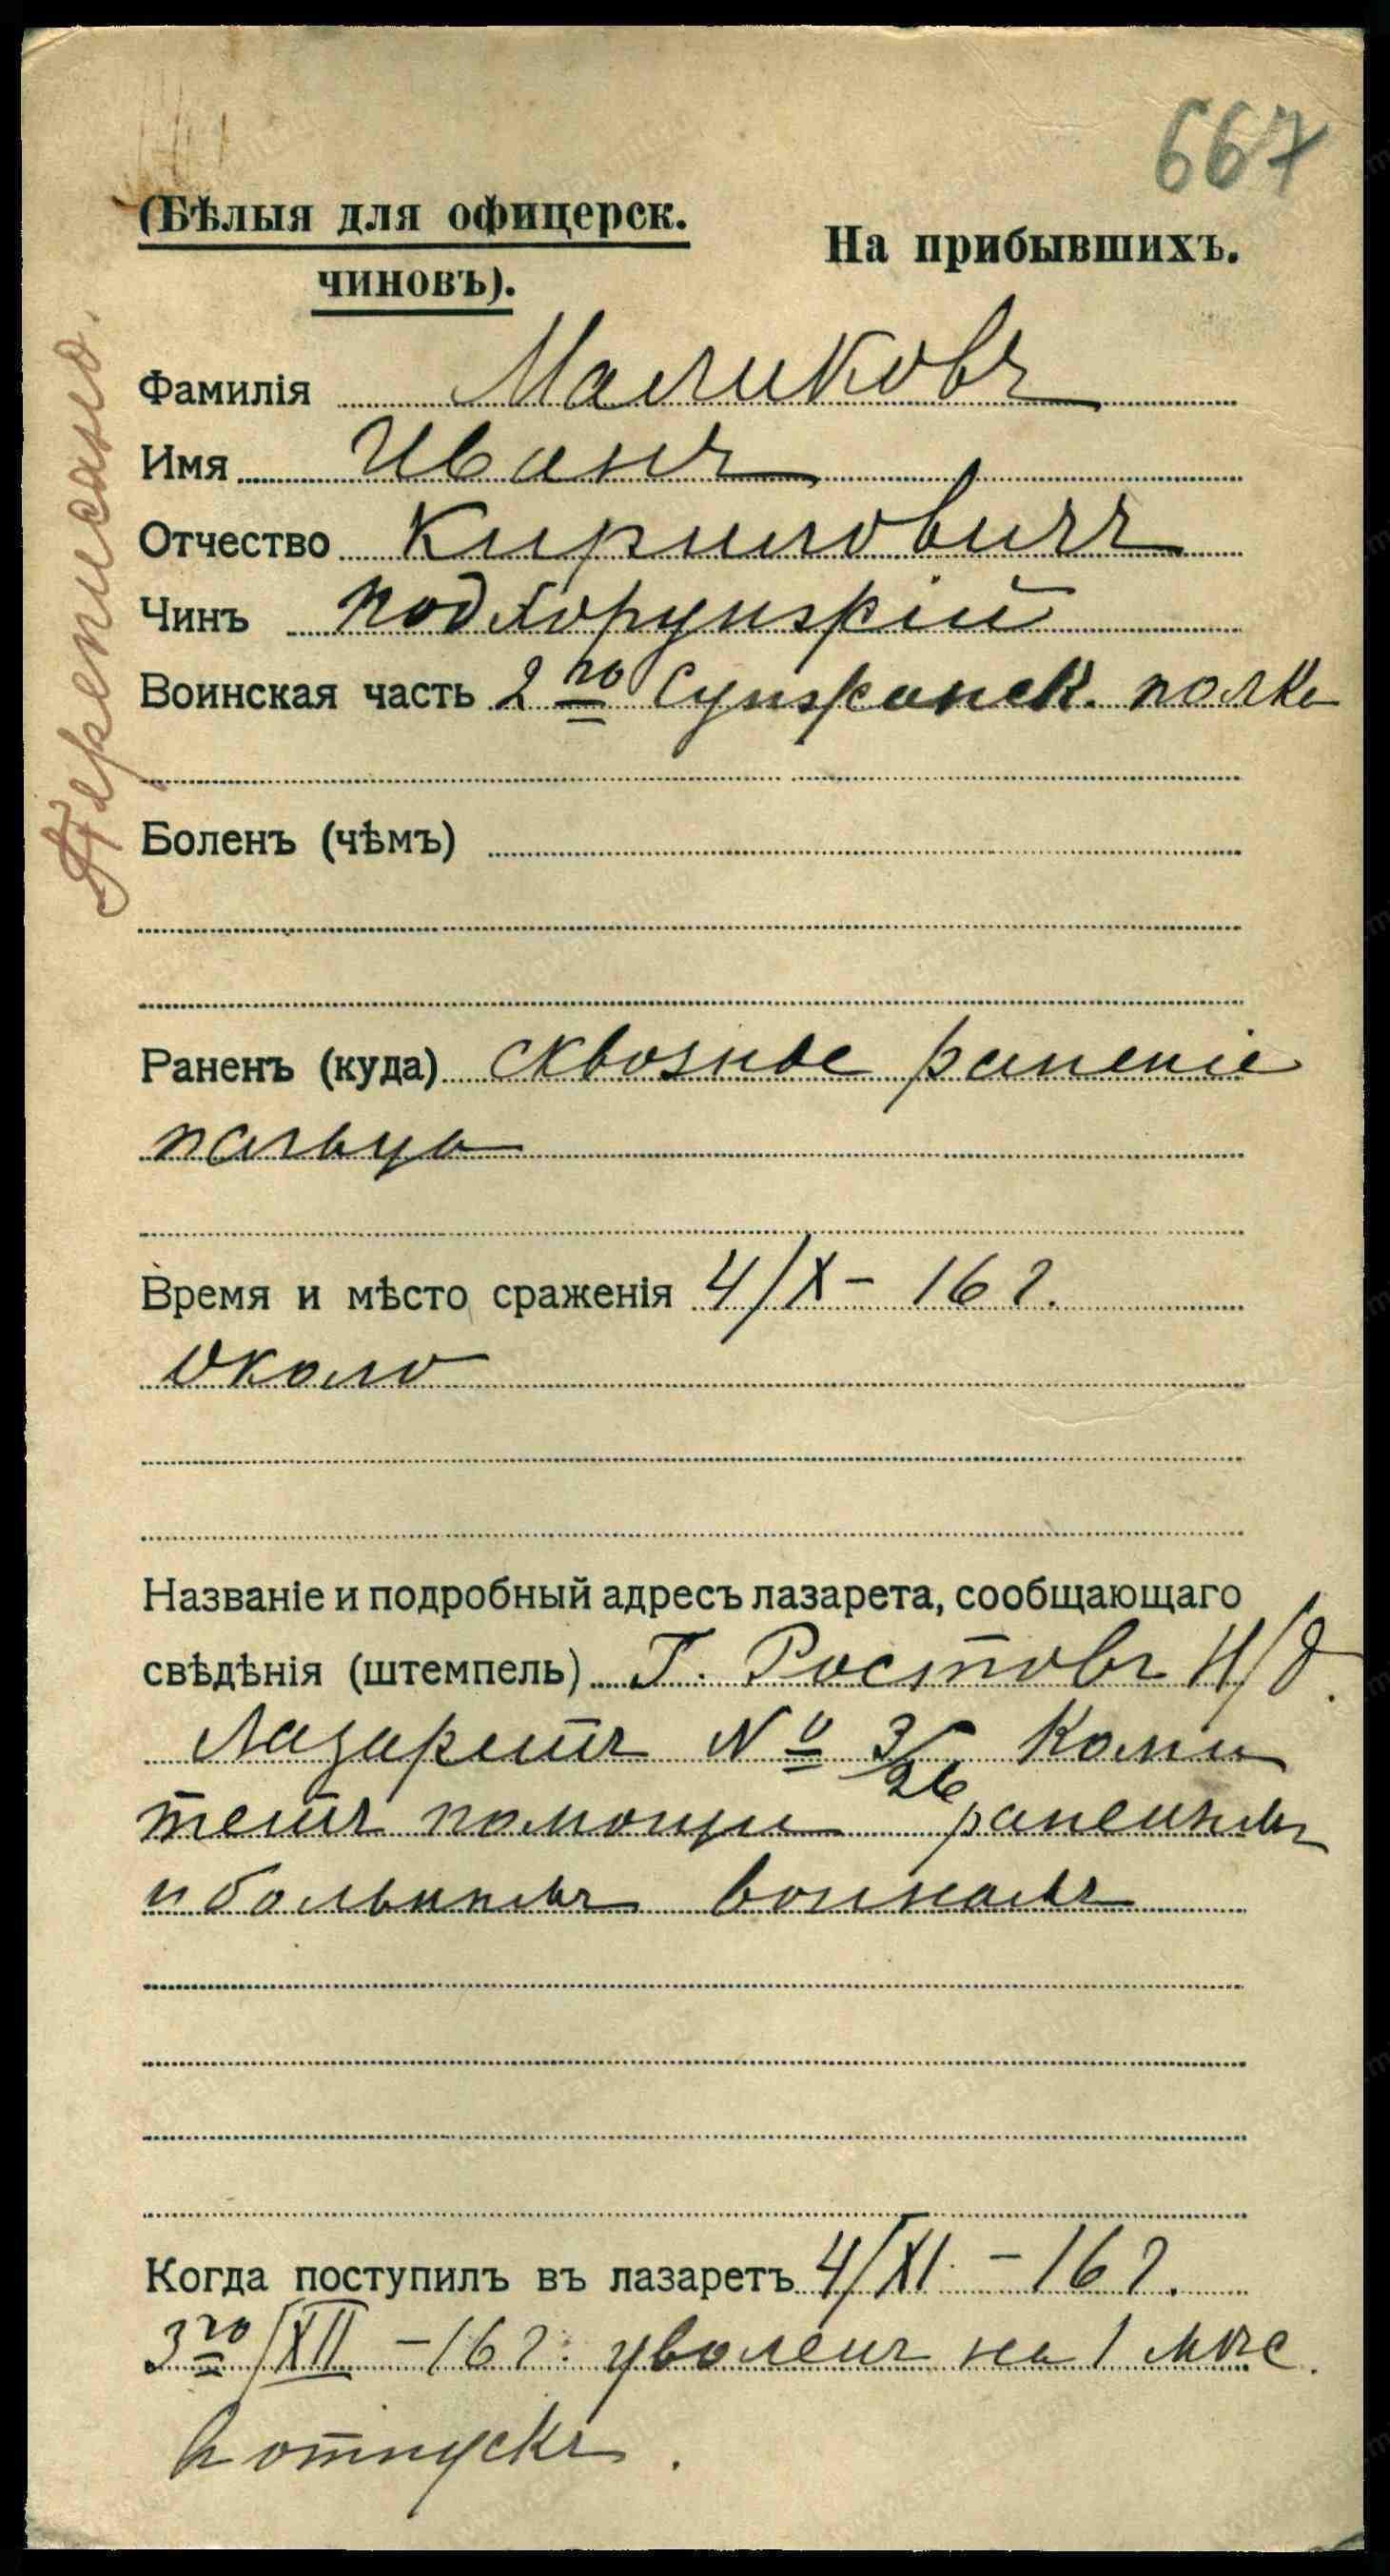 667
(Бѣлыя для офицерск.
чиновъ).
На прибывшихъ.
Переписано.
Фамилія Маликовъ
Имя Иванъ
Отчество Кириловичъ
Чинъ подхорунжій
Воинская часть 2го Сунженск. полка
Боленъ (чѣмъ)
Раненъ (куда) сквозное раненіе
пальца
Время и мѣсто сраженія 4/X – 16 г.
около
Названіе и подробный адресъ лазарета, сообщающаго
свѣдѣнія (штемпель) Г. Ростовъ Н/Д.
Лазаретъ № 3/26 Коми
тетъ помощи раненымъ
и больнымъ воинамъ
Когда поступилъ въ лазаретъ 4/XI – 16 г.
3го/XII – 16 г. уволенъ на 1 мѣс.
въ отпускъ.